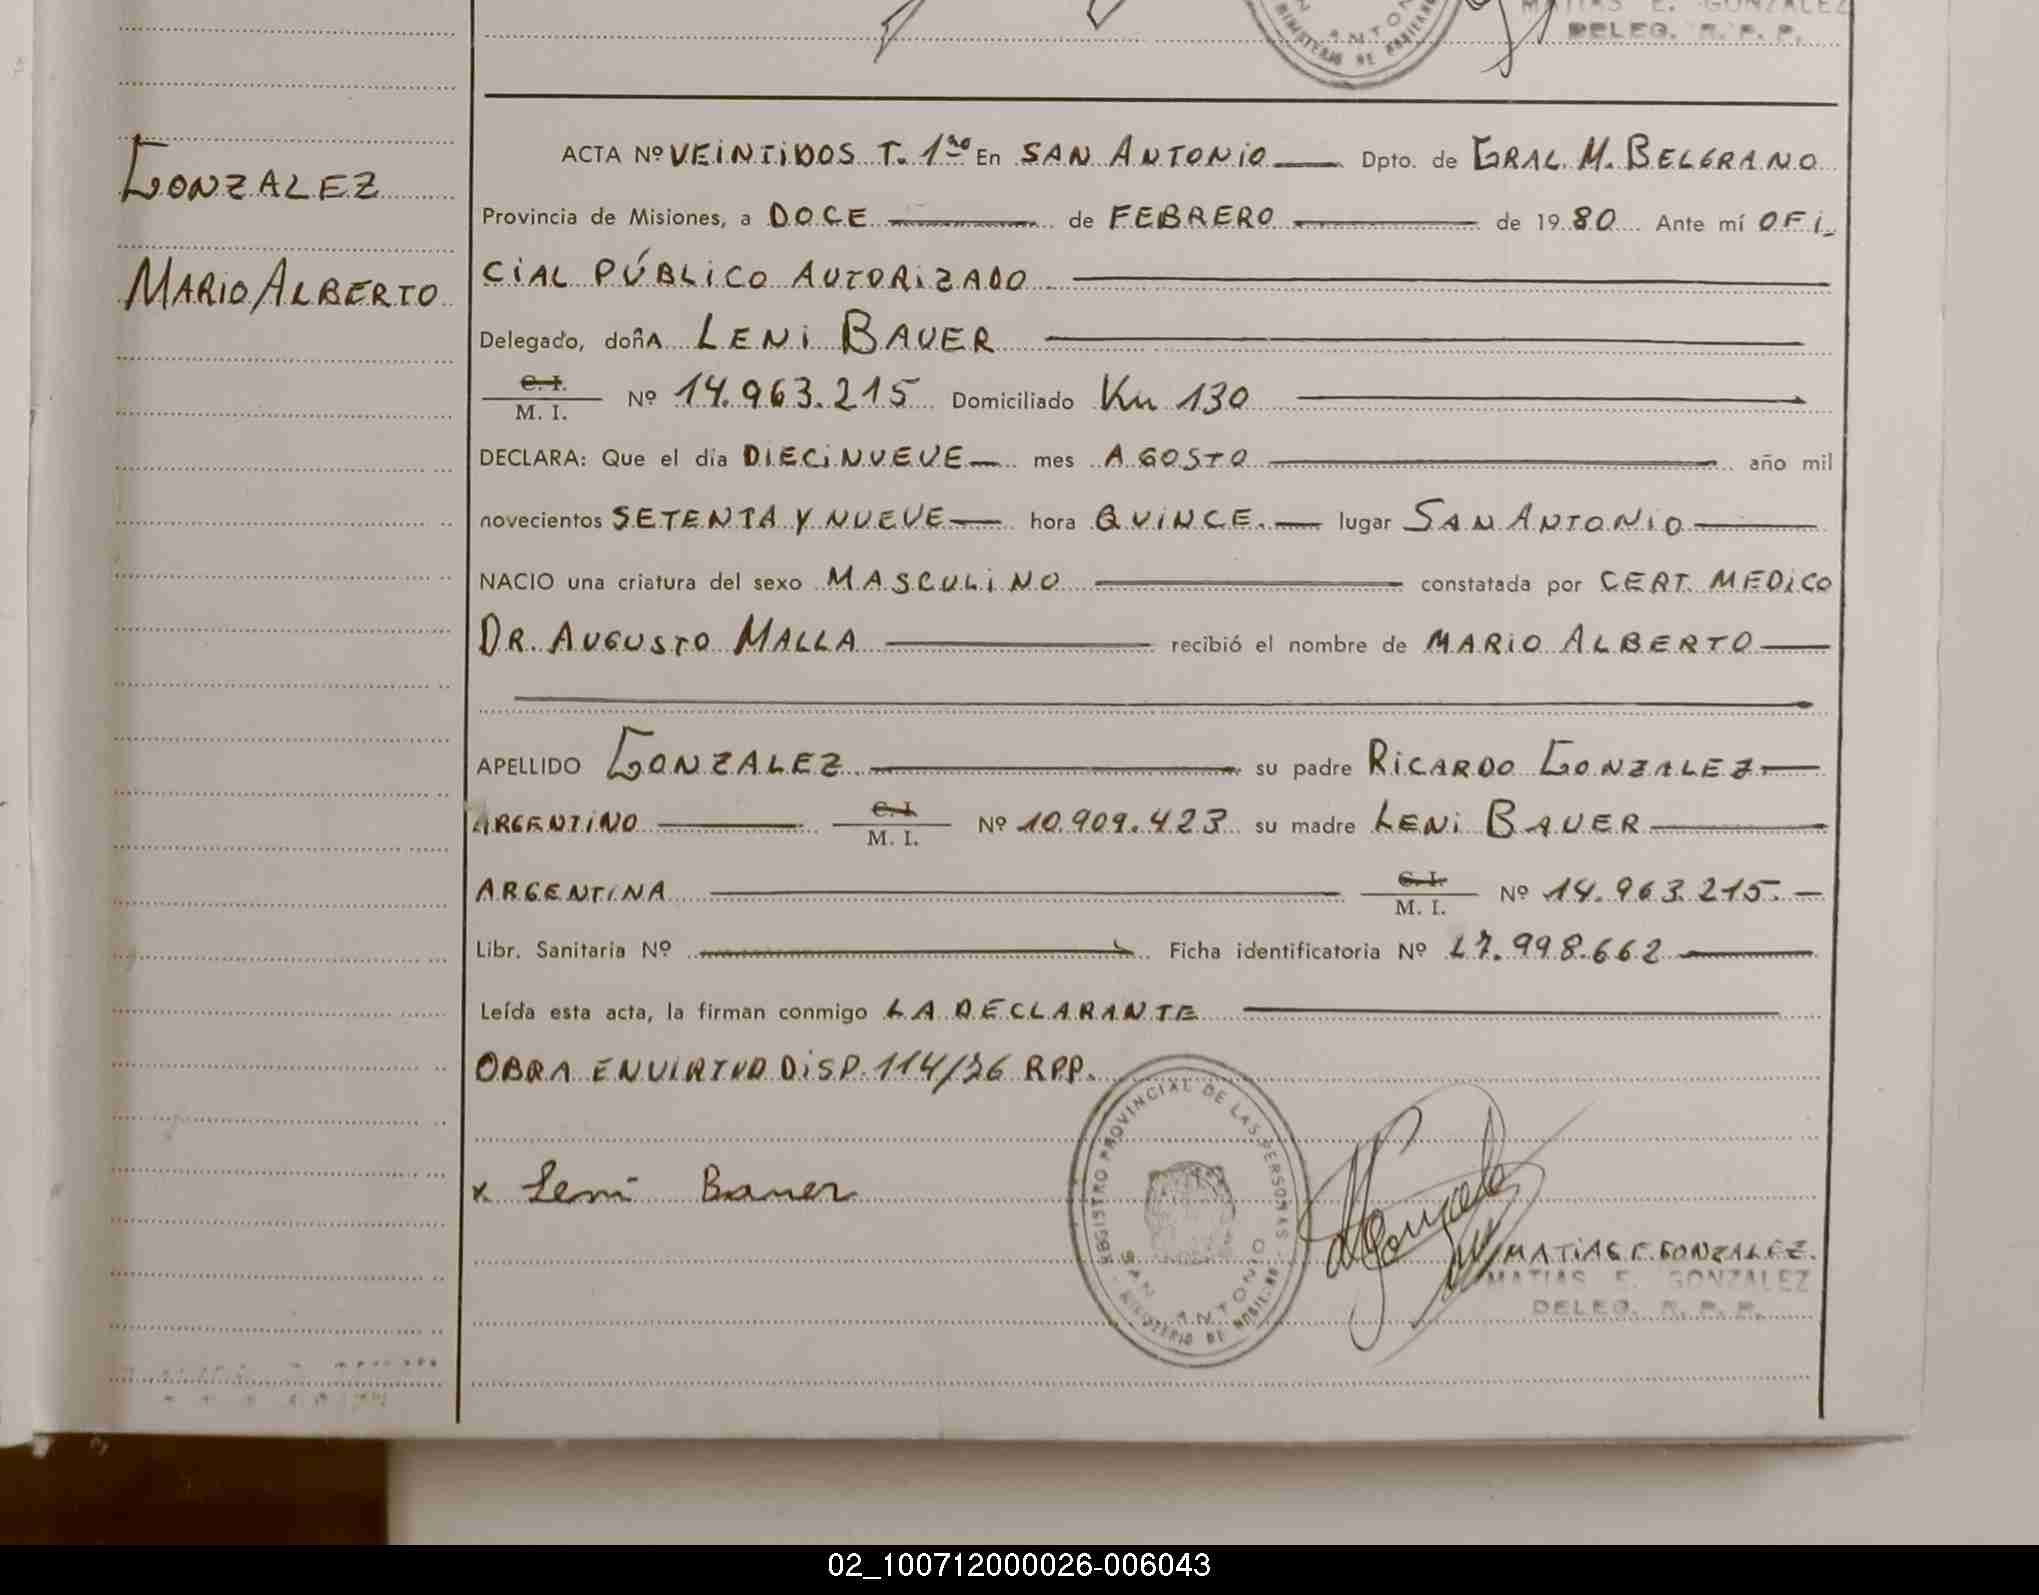 MATIAS E. GONZALEZ
DELEG. R. P. P.
SAN ANTONIO
MINISTERIO DE
GONZALEZ
MARIO ALBERTO
ACTA Nº VEINTIDOS T. 1ro En SAN ANTONIO Dpto. de GRAL. M. BELGRANO
Provincia de Misiones, a DOCE de FEBRERO de 1980 Ante mí OFI-
CIAL PÚBLICO AUTORIZADO
Delegado, doñA LENI BAUER
C. I.
M. I. Nº 14.963.215 Domiciliado Km 130
DECLARA: Que el día DIECINUEVE mes AGOSTO año mil
novecientos SETENTA Y NUEVE hora QUINCE. lugar SAN ANTONIO
NACIO una criatura del sexo MASCULINO constatada por CERT. MEDICO
DR. AUGUSTO MALLA recibió el nombre de MARIO ALBERTO
APELLIDO GONZALEZ su padre RICARDO GONZALEZ
ARGENTINO C. I. M. I. Nº 10.909.423 su madre LENI BAUER
ARGENTINA C. I. M. I. Nº 14.963.215.
Libr. Sanitaria Nº Ficha identificatoria Nº 27.998.662
Leída esta acta, la firman conmigo LA DECLARANTE
OBRA EN VIRTUD DISP. 114/76 RPP.
x Leni Bauer
REGISTRO PROVINCIAL DE LAS PERSONAS
SAN ANTONIO
MINISTERIO DE
MATIAS E. GONZALEZ.
MATIAS E. GONZALEZ
DELEG. R. P. P.
02_100712000026-006043